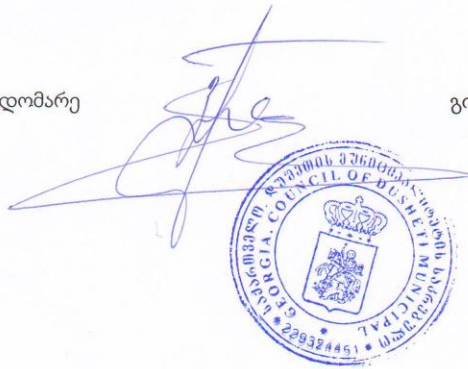 დომარე გი
საქართველო. დუშეთის მუნიციპალიტეტის საკრებულო
GEORGIA. COUNCIL OF DUSHETI MUNICIPAL